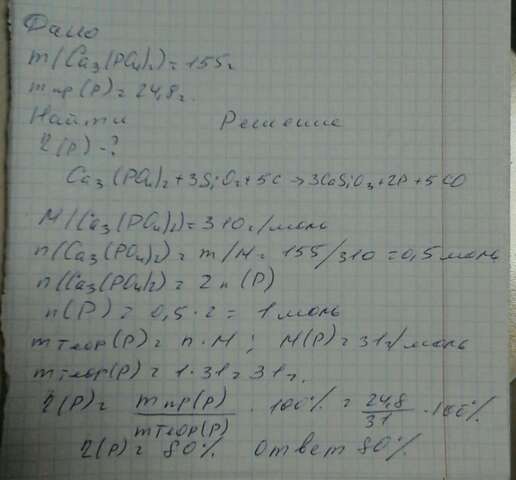 Дано
m(Ca₃(PO₄)₂)=155г
m пр(P)=24,8г.
Найти Решение
η(P)-?
Ca₃(PO₄)₂+3SiO₂+5C→3CaSiO₃+2P+5CO
M(Ca₃(PO₄)₂)=310г/моль
n(Ca₃(PO₄)₂)=m/M=155/310=0,5 моль
n(Ca₃(PO₄)₂=2n(P)
n(P)=0,5·2=1 моль
m теор(P)=n·M; M(P)=31г/моль
m теор(P)=1·31=31г.
η(P)= m пр(P)/m теор(P) · 100% = 24,8/31 ·100%
η(P)=80% Ответ 80%.